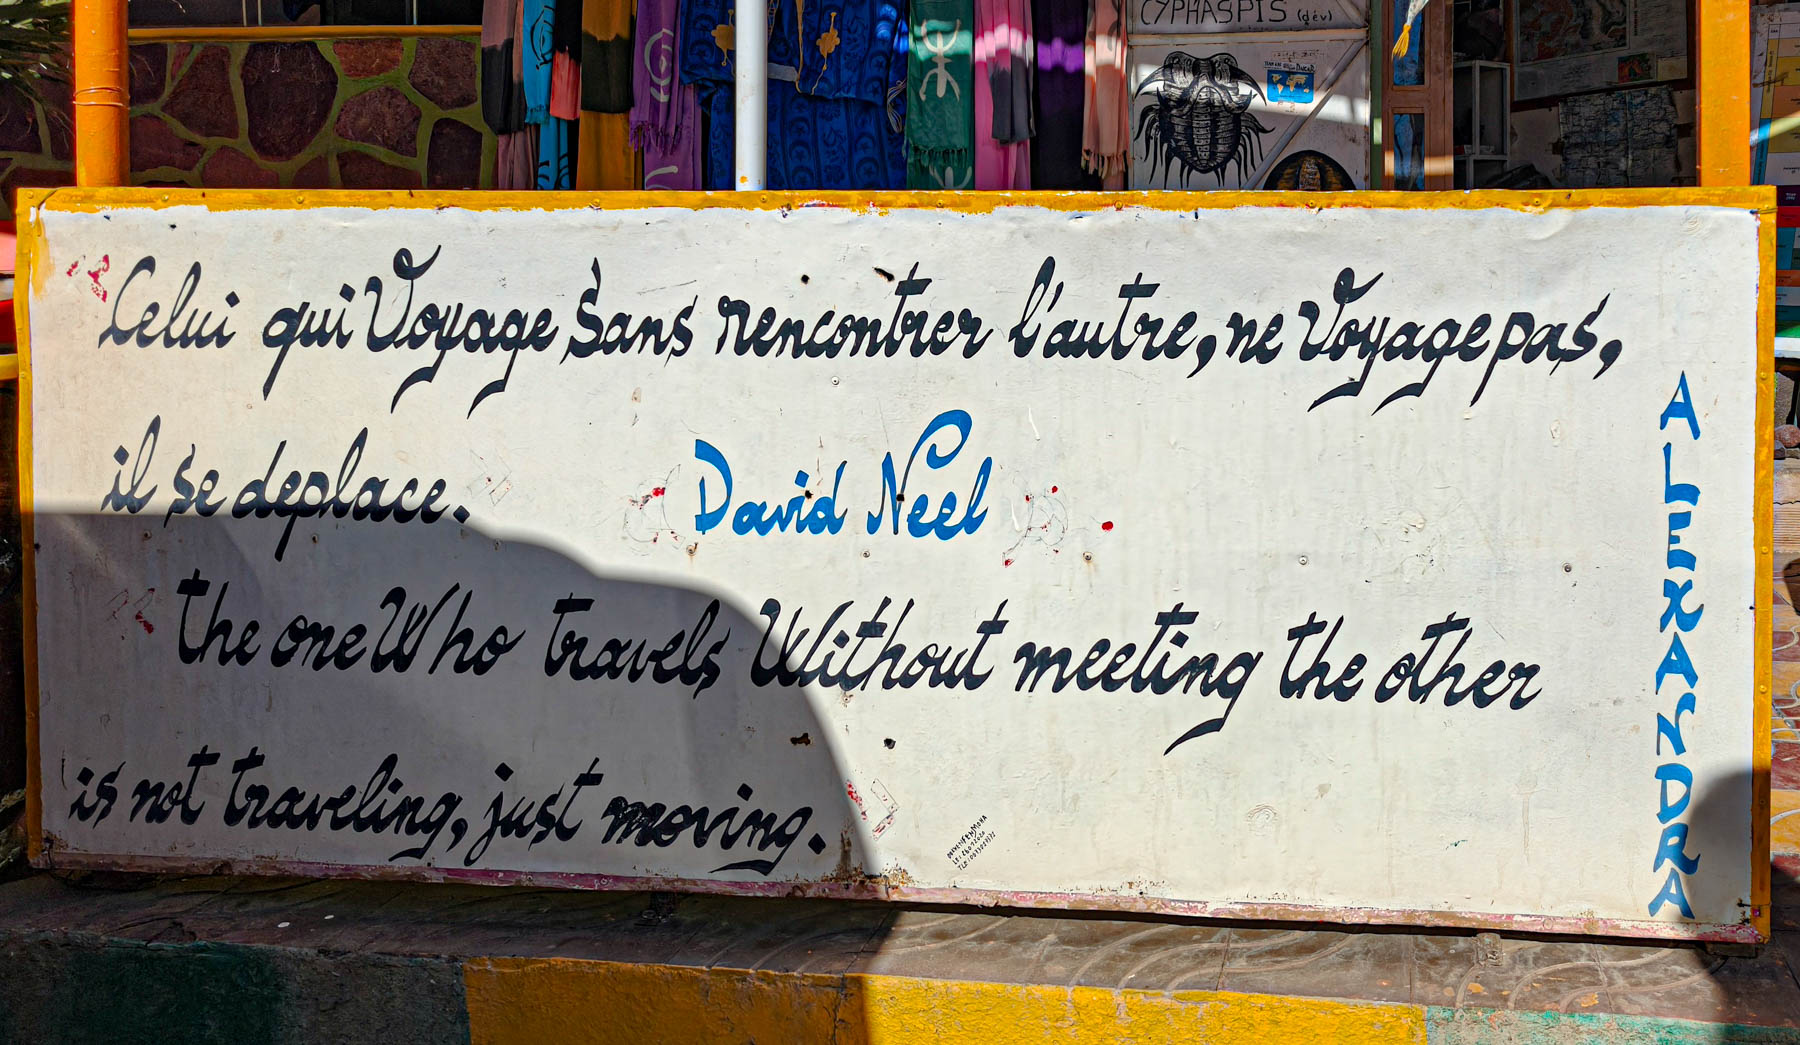 CYPHASPIS (dév)
Celui qui Voyage Sans rencontrer l'autre, ne Voyage pas,
il se deplace.
David Neel
ALEXANDRA
the one Who travels Without meeting the other
is not traveling, just moving.